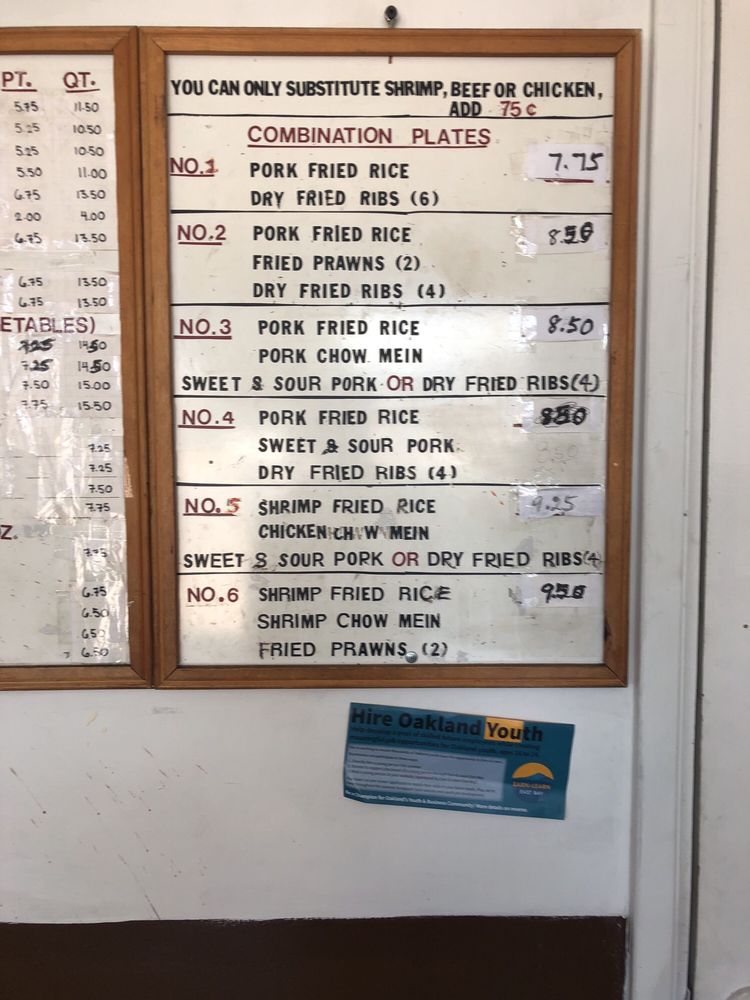 PT. QT.
5.75 11.50
5.25 10.50
5.25 10.50
5.50 11.00
6.75 13.50
2.00 4.00
6.75 13.50
6.75 13.50
6.75 13.50
ETABLES)
7.25 14.50
7.25 14.50
7.50 15.00
7.75 15.50
7.25
7.25
7.50
7.75
Z.
7.75
6.75
6.50
6.50
6.50
YOU CAN ONLY SUBSTITUTE SHRIMP, BEEF OR CHICKEN,
ADD 75¢
COMBINATION PLATES
NO.1 PORK FRIED RICE 7.75
DRY FRIED RIBS (6)
NO.2 PORK FRIED RICE 8.50
FRIED PRAWNS (2)
DRY FRIED RIBS (4)
NO.3 PORK FRIED RICE 8.50
PORK CHOW MEIN
SWEET & SOUR PORK OR DRY FRIED RIBS(4)
NO.4 PORK FRIED RICE 8.50
SWEET & SOUR PORK 8.50
DRY FRIED RIBS (4)
NO.5 SHRIMP FRIED RICE 9.25
CHICKEN CH W MEIN
SWEET & SOUR PORK OR DRY FRIED RIBS(4
NO.6 SHRIMP FRIED RICE 9.50
SHRIMP CHOW MEIN
FRIED PRAWNS (2)
Hire Oakland Youth
EARN+LEARN
EAST BAY